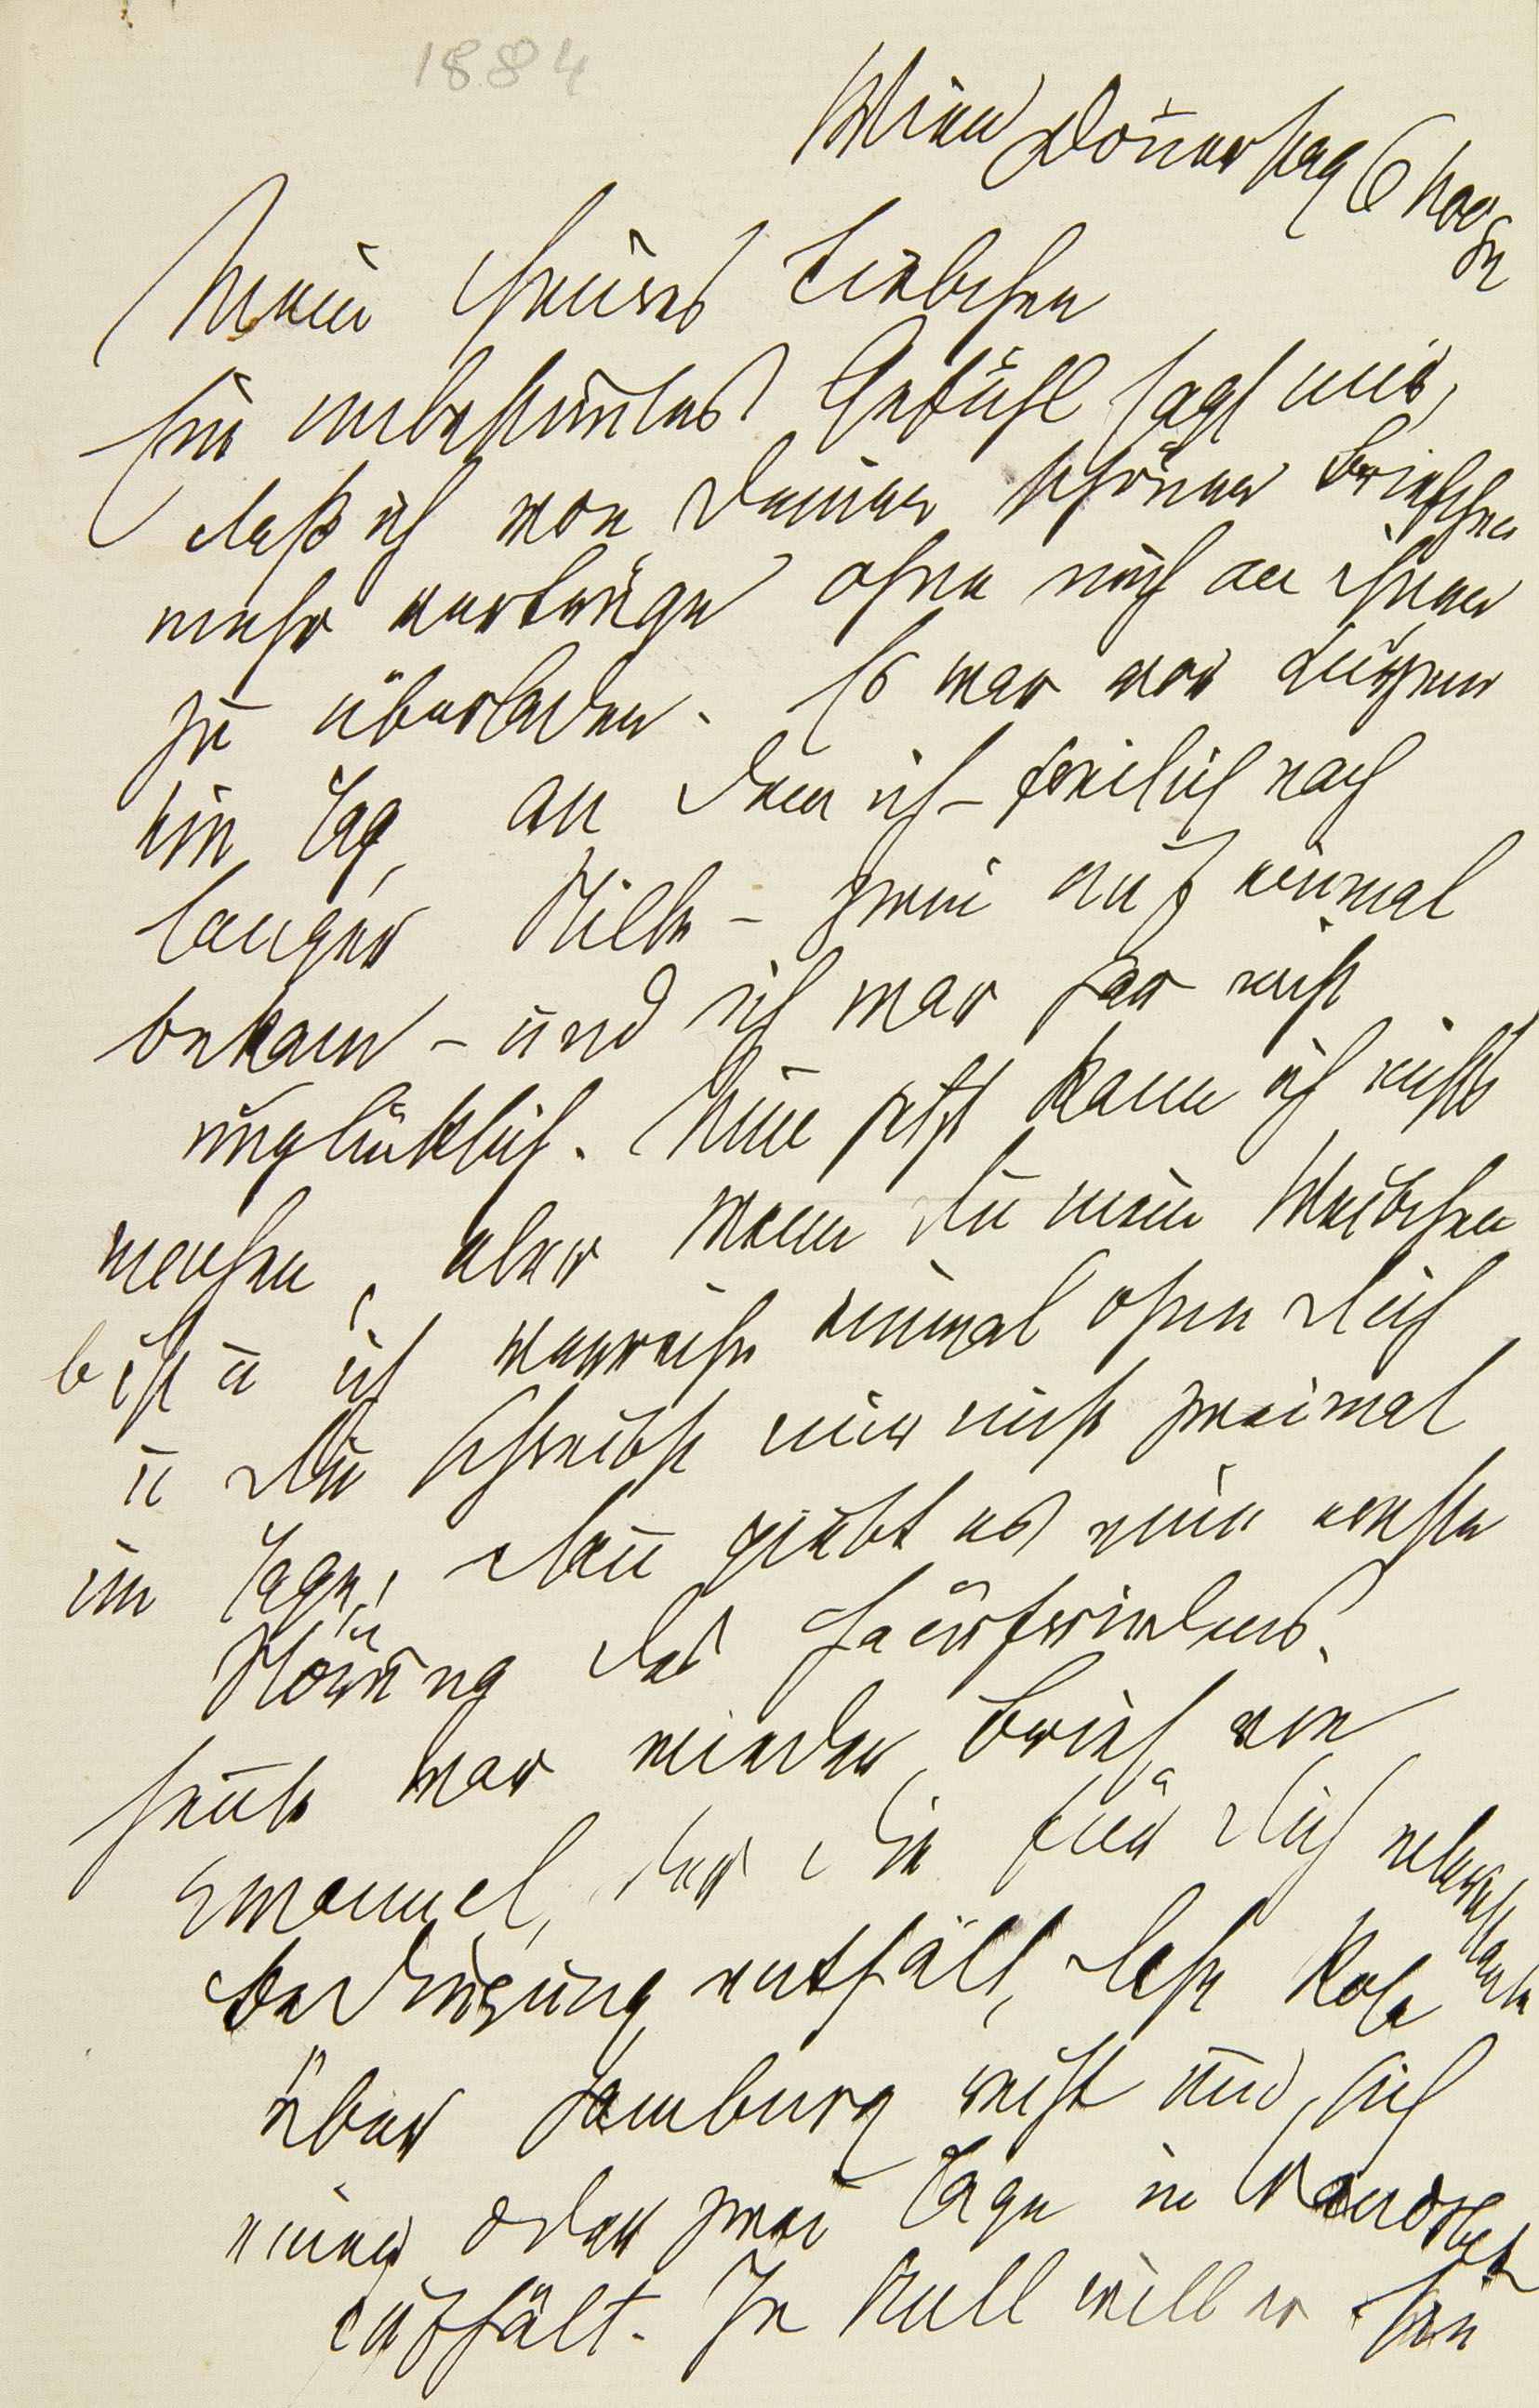 1884
Wien Donnerstag 6 Nov
Mein theures Liebchen
Ein unbestimtes Gefühl sagt mir,
daß ich von Deinen schönen Briefchen
mehr vertrüge ohne mich an ihnen
zu überladen. Es war vor Kurzem
ein Tag, an dem ich – freilich nach
langer Stille – zwei auf einmal
bekam – und ich war gar nicht
unglücklich. Nun jetzt kann ich nichts
machen, aber wenn Du mein Weibchen
bist u ich verreise einmal ohne Dich
u Du schreibst mir nicht zweimal
im Tage, dan̄ giebt es eine ernste
Störung des Hausfriedens.
Heute war wieder Brief von
Emanuel, der die für Dich relevante
Bedingung enthält, daß Rosa
über Hamburg reist und sich
einen oder zwei Tage in Wandsbek
aufhält. In Null will er